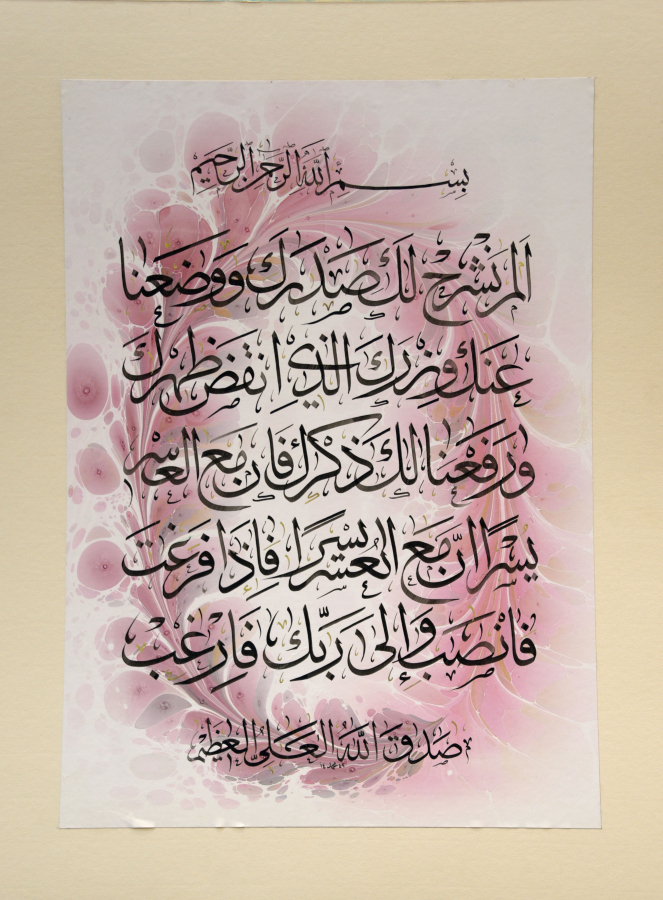 بسم الله الرحمن الرحيم
الم نشرح لك صدرك ووضعنا
عنك وزرك الذي انقض ظهرك
ورفعنا لك ذكرك فان مع العسر
يسرا ان مع العسر يسرا فاذا فرغت
فانصب والى ربك فارغب
صدق الله العلي العظيم